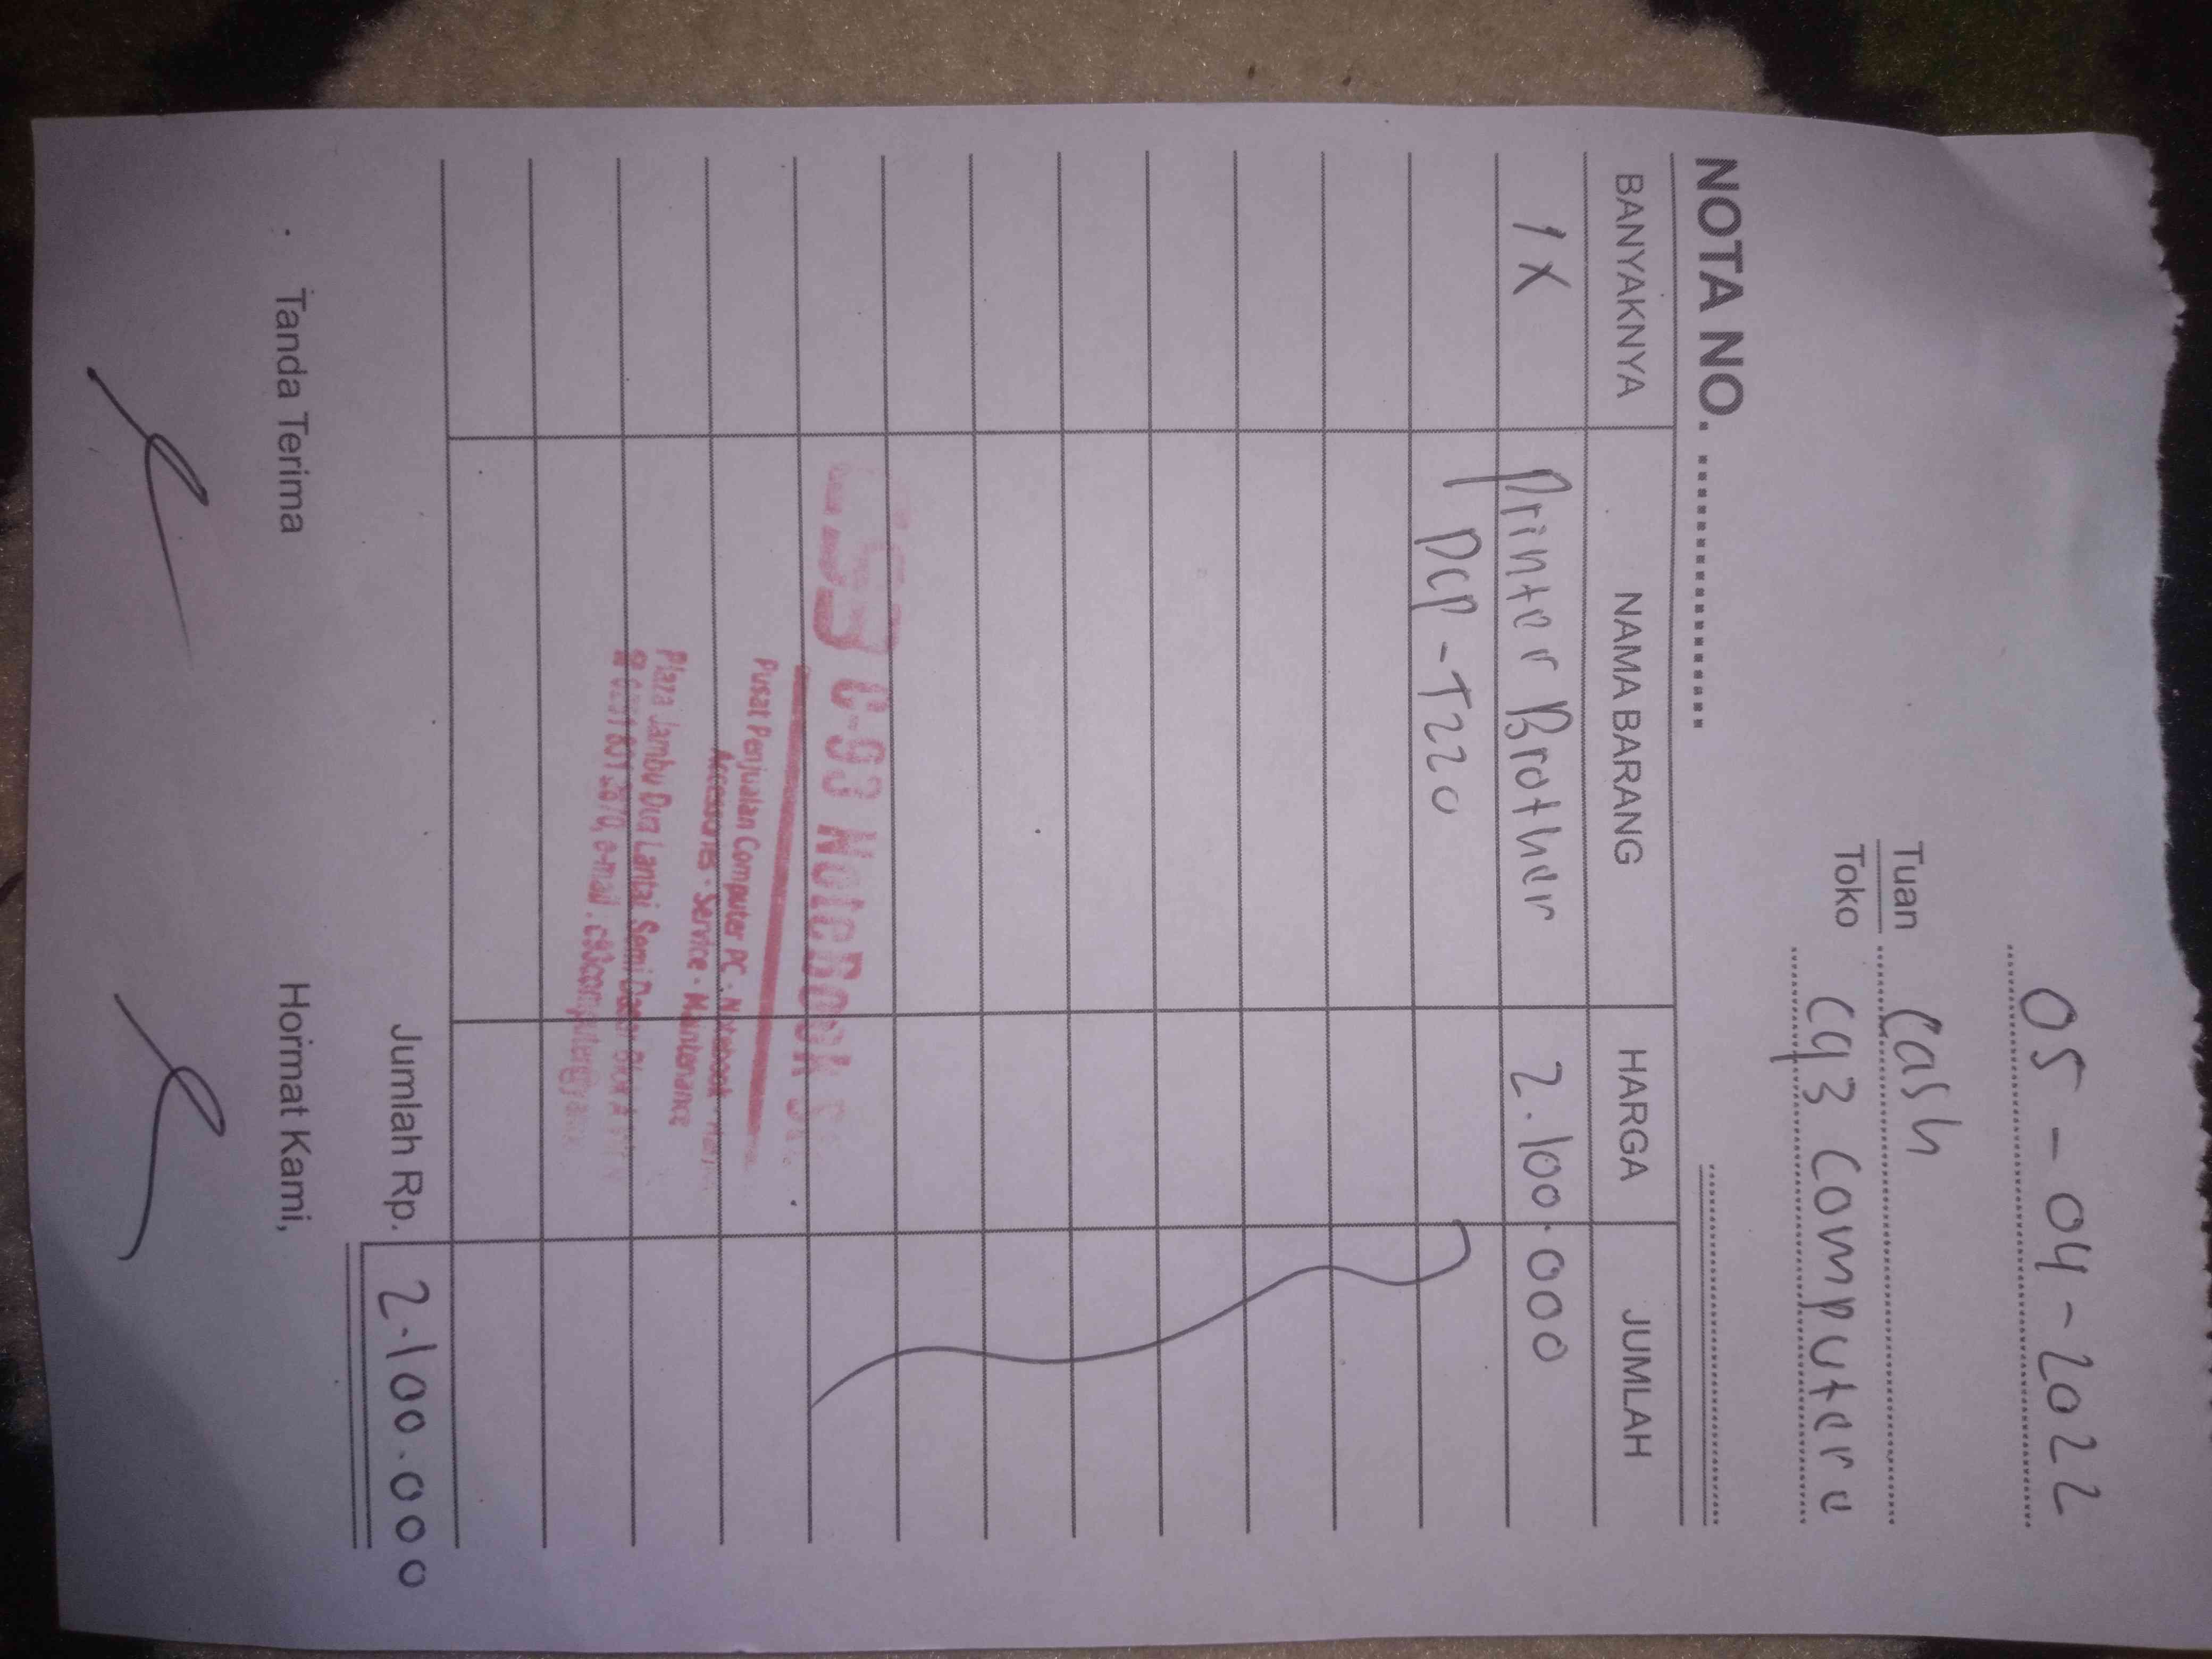 05-04-2022
Tuan Cash
Toko C93 Computer
NOTA NO. ....................
BANYAKNYA NAMA BARANG HARGA JUMLAH
1 X Printer Brother 2.100.000
DCP-T220
C-93 NoteBook
Pusat Penjualan Computer PC - Notebook -
Accessories - Service - Maintenance
Plaza Jambu Dua Lantai Semi Dasar Blok A
e-mail
Jumlah Rp. 2.100.000
Tanda Terima Hormat Kami,